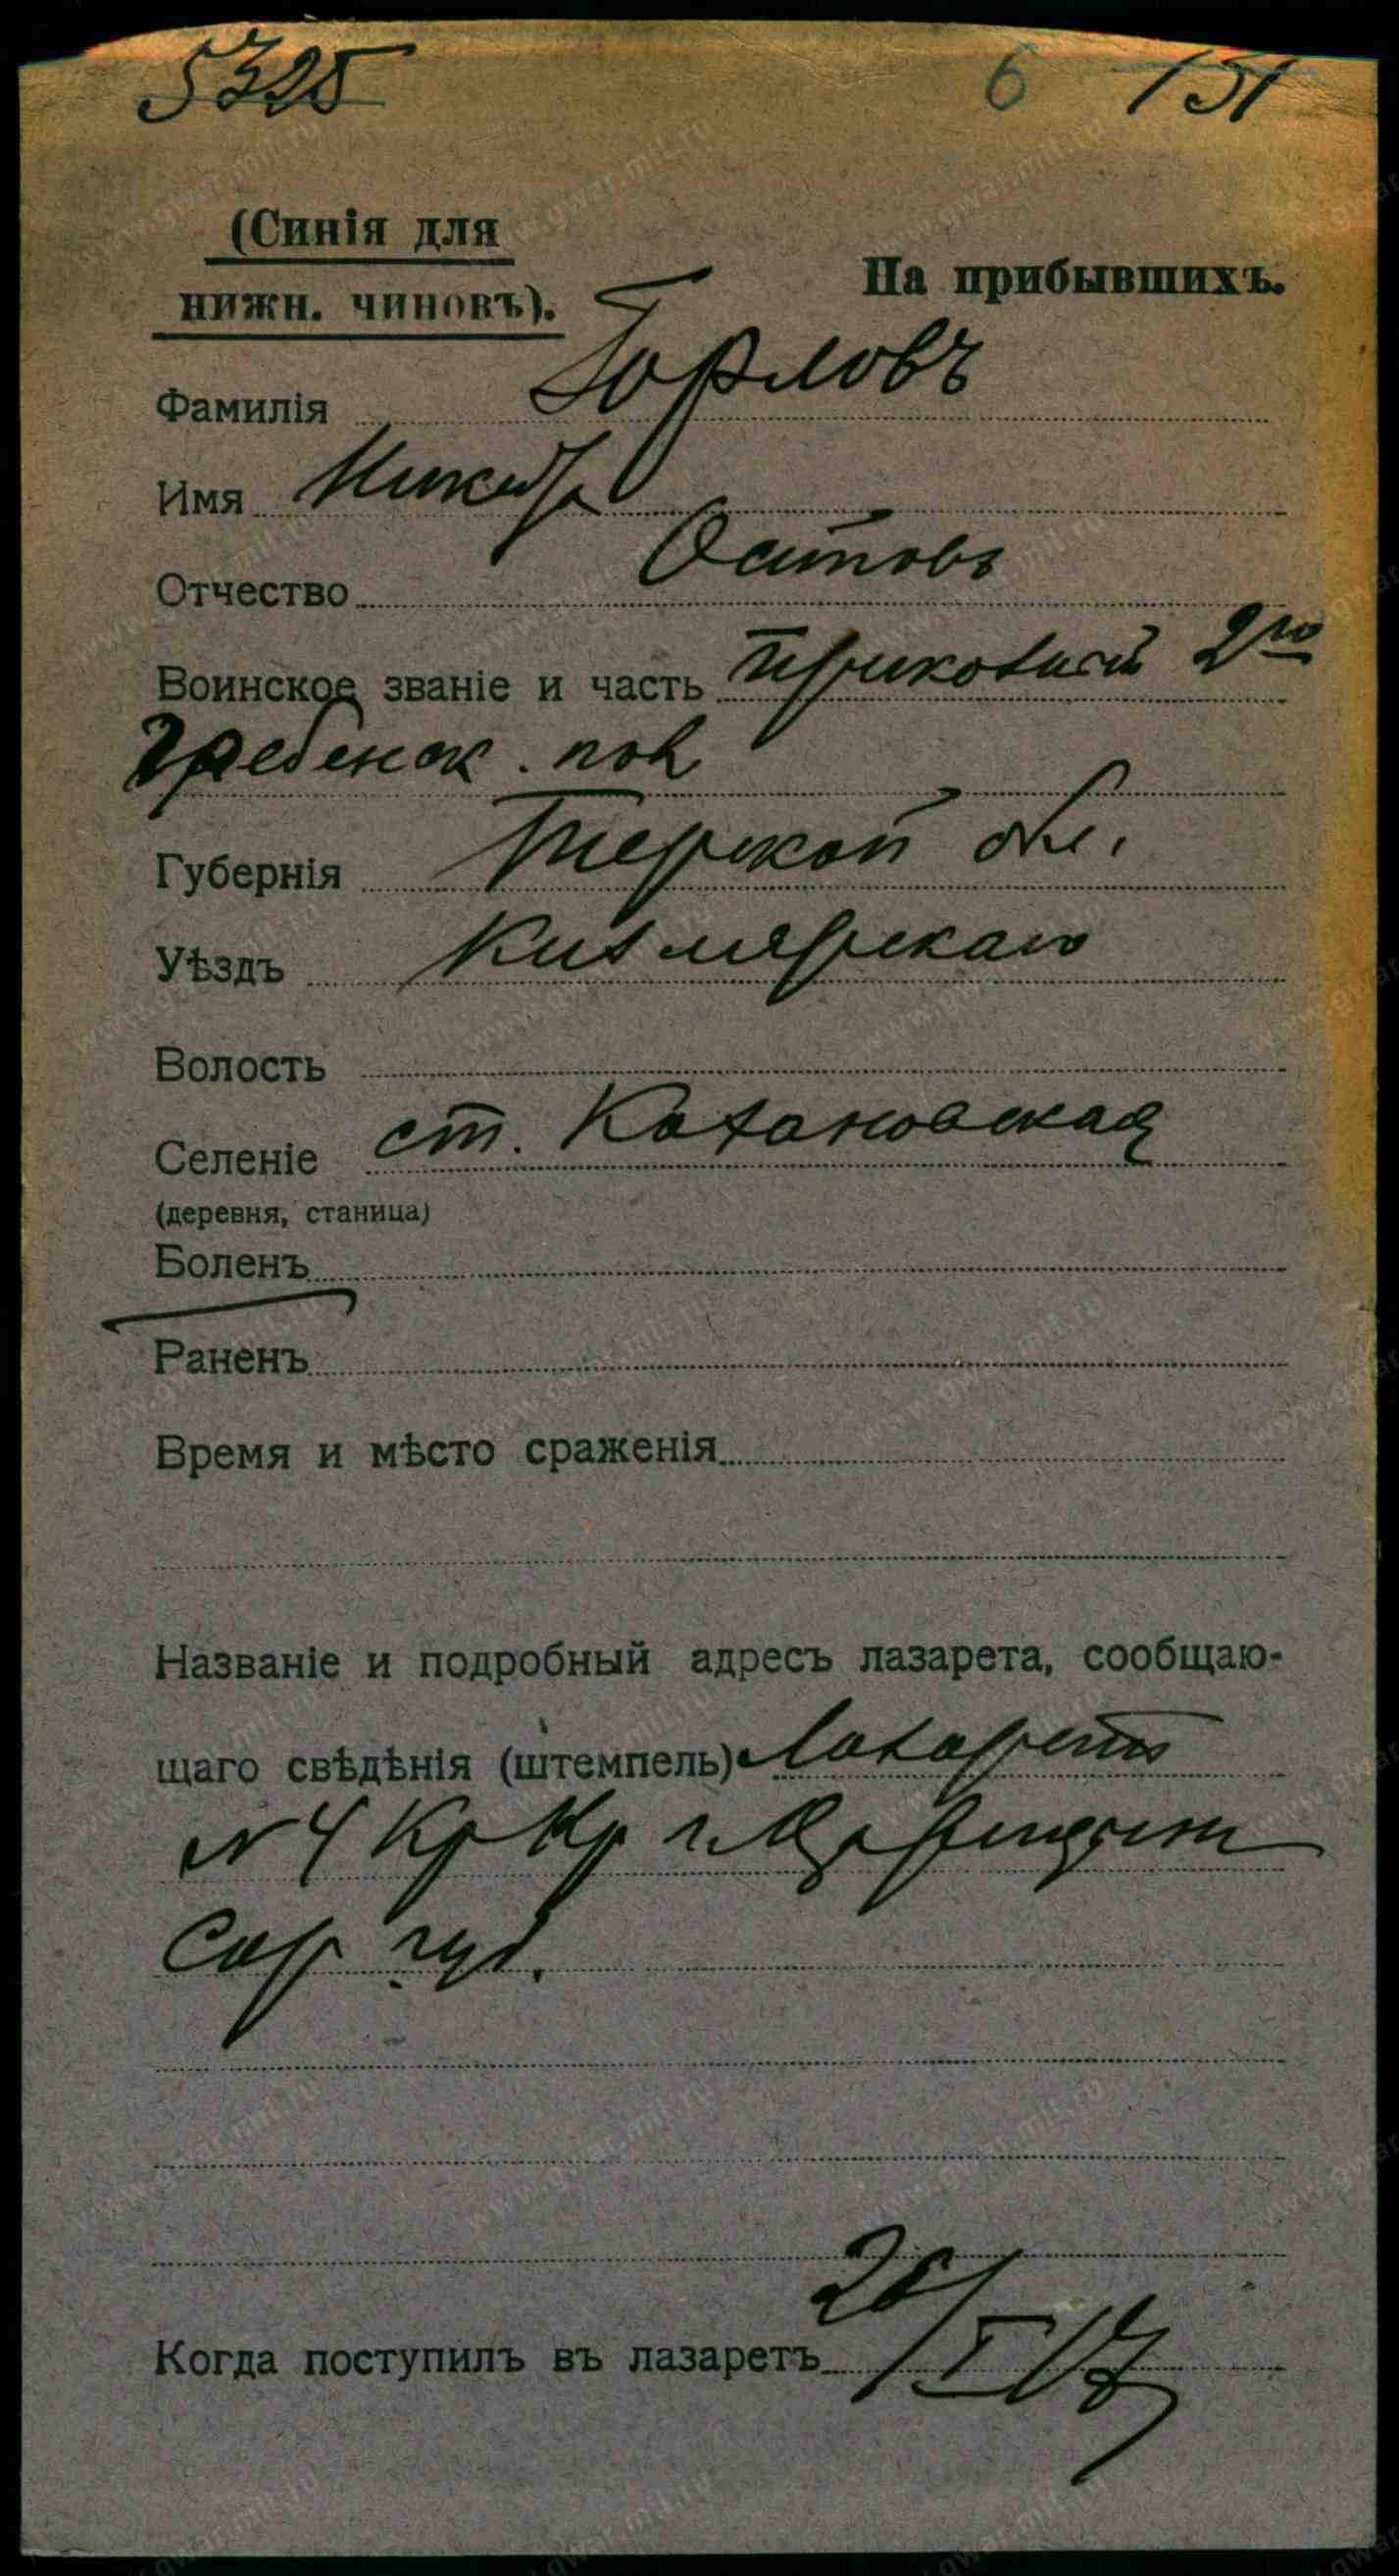 5325 6 151
(Синія для
нижн. чиновъ).
На прибывшихъ.
Фамилія Горловъ
Имя Никита
Отчество
Воинское званіе и часть приказный 2го
Гребенск. пол
Губернія Терской обл.
Уѣздъ Кизлярскаго
Волость
Селеніе ст. Кахановская
(деревня, станица)
Боленъ
Раненъ
Время и мѣсто сраженія
Названіе и подробный адресъ лазарета, сообщаю-
щаго свѣдѣнія (штемпель) Лазаретъ
N 4 Кр Кр г. Царицын
Сар губ.
Когда поступилъ въ лазаретъ 26/I 17
www.gwar.mil.ru